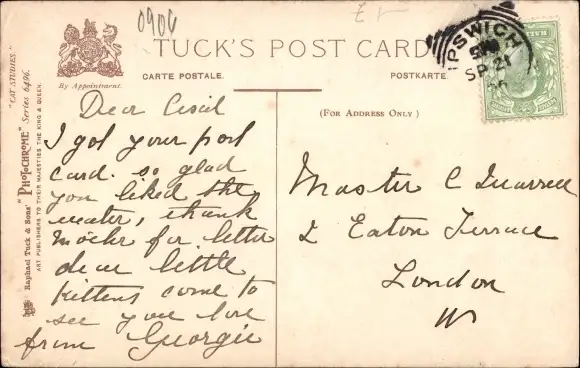 0906
£1-
TUCK'S POST CARD
CARTE POSTALE.
POSTKARTE.
By Appointment.
(FOR ADDRESS ONLY)
IPSWICH
SP 21
06
Raphael Tuck & Sons' "PHOTOCHROME" Series 6496.
"CAT STUDIES."
ART PUBLISHERS TO THEIR MAJESTIES THE KING & QUEEN.
Dear Cecil
I got your post
card. so glad
you liked the
water, thank
Mother for letter
dear little
kittens come to
see you love
from Georgie
Master C Quarrell
2 Eaton Terrace
London
W